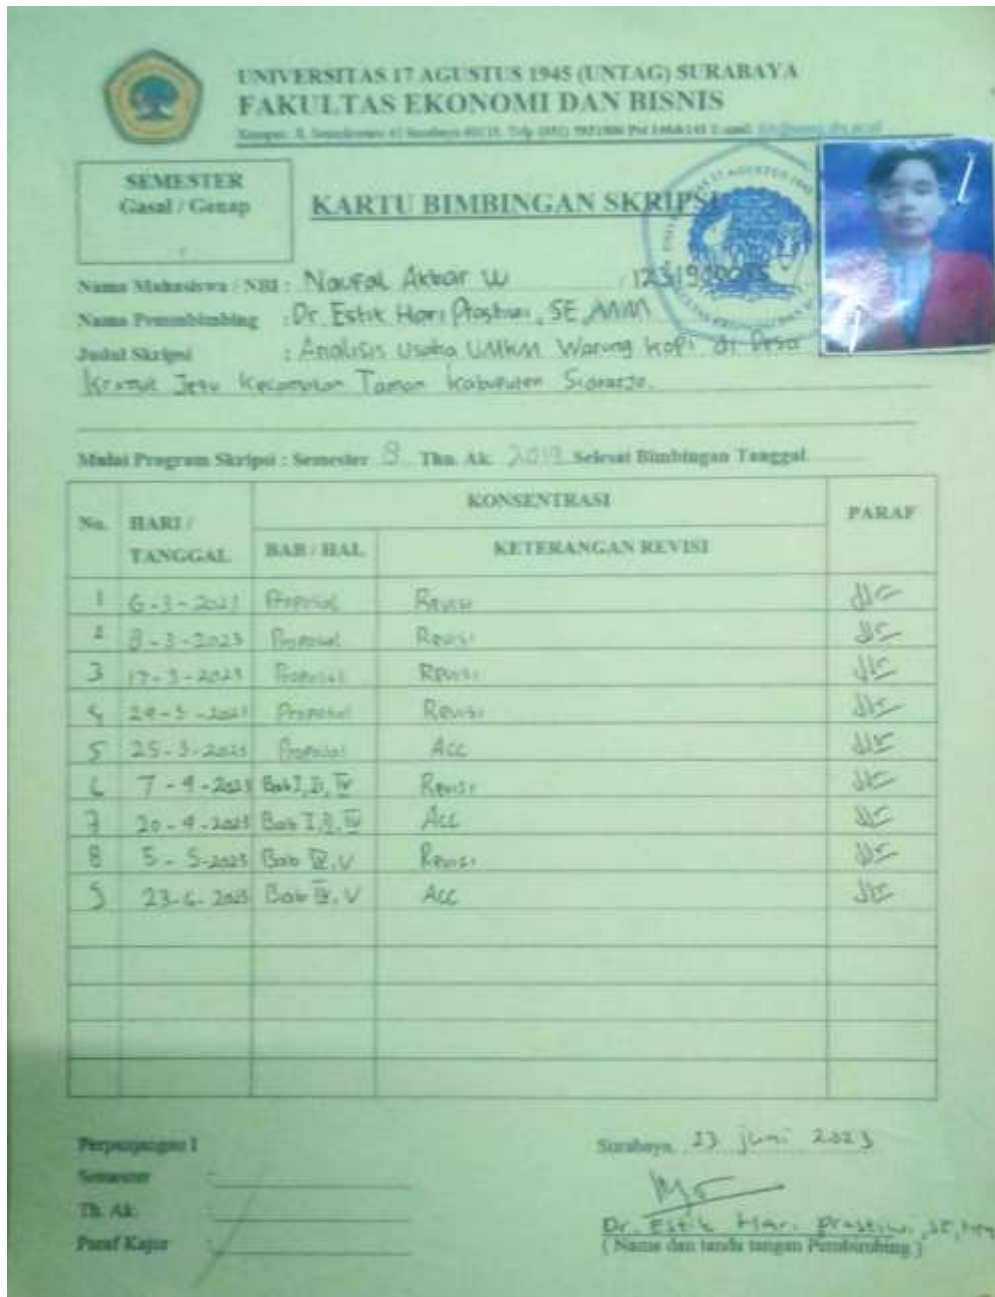 UNIVERSITAS 17 AGUSTUS 1945 (UNTAG) SURABAYA
FAKULTAS EKONOMI DAN BISNIS
SEMESTER
Gasal / Genap
KARTU BIMBINGAN SKRIPSI
Nama Mahasiswa / NBI : Naufal Akbar W
Nama Pembimbing : Dr. Estik Hari Prastiwi, SE, MM
Judul Skripsi : Analisis Usaha UMKM Warung Kopi di Desa
Kecamatan Taman Kabupaten Sidoarjo.
Mulai Program Skripsi : Semester 8 Thn. Ak. 2019 Selesai Bimbingan Tanggal
No. HARI / TANGGAL KONSENTRASI PARAF
BAB / HAL KETERANGAN REVISI
1 6-3-2023 Proposal Revisi
2 8-3-2023 Proposal Revisi
3 17-3-2023 Proposal Revisi
4 Proposal Revisi
5 25-3-2023 Proposal Acc
6 7-4-2023 Bab I, II, Revisi
7 20-4-2023 Bab I, II, Acc
8 5-5-2023 Bab IV, V Revisi
23-6-2023 Bab IV, V Acc
Perpanjangan I
Semester :
Th. Ak. :
Paraf Kajur :
Surabaya, 23 juni 2023
Dr. Estik Hari Prastiwi, SE, MM
( Nama dan tanda tangan Pembimbing )